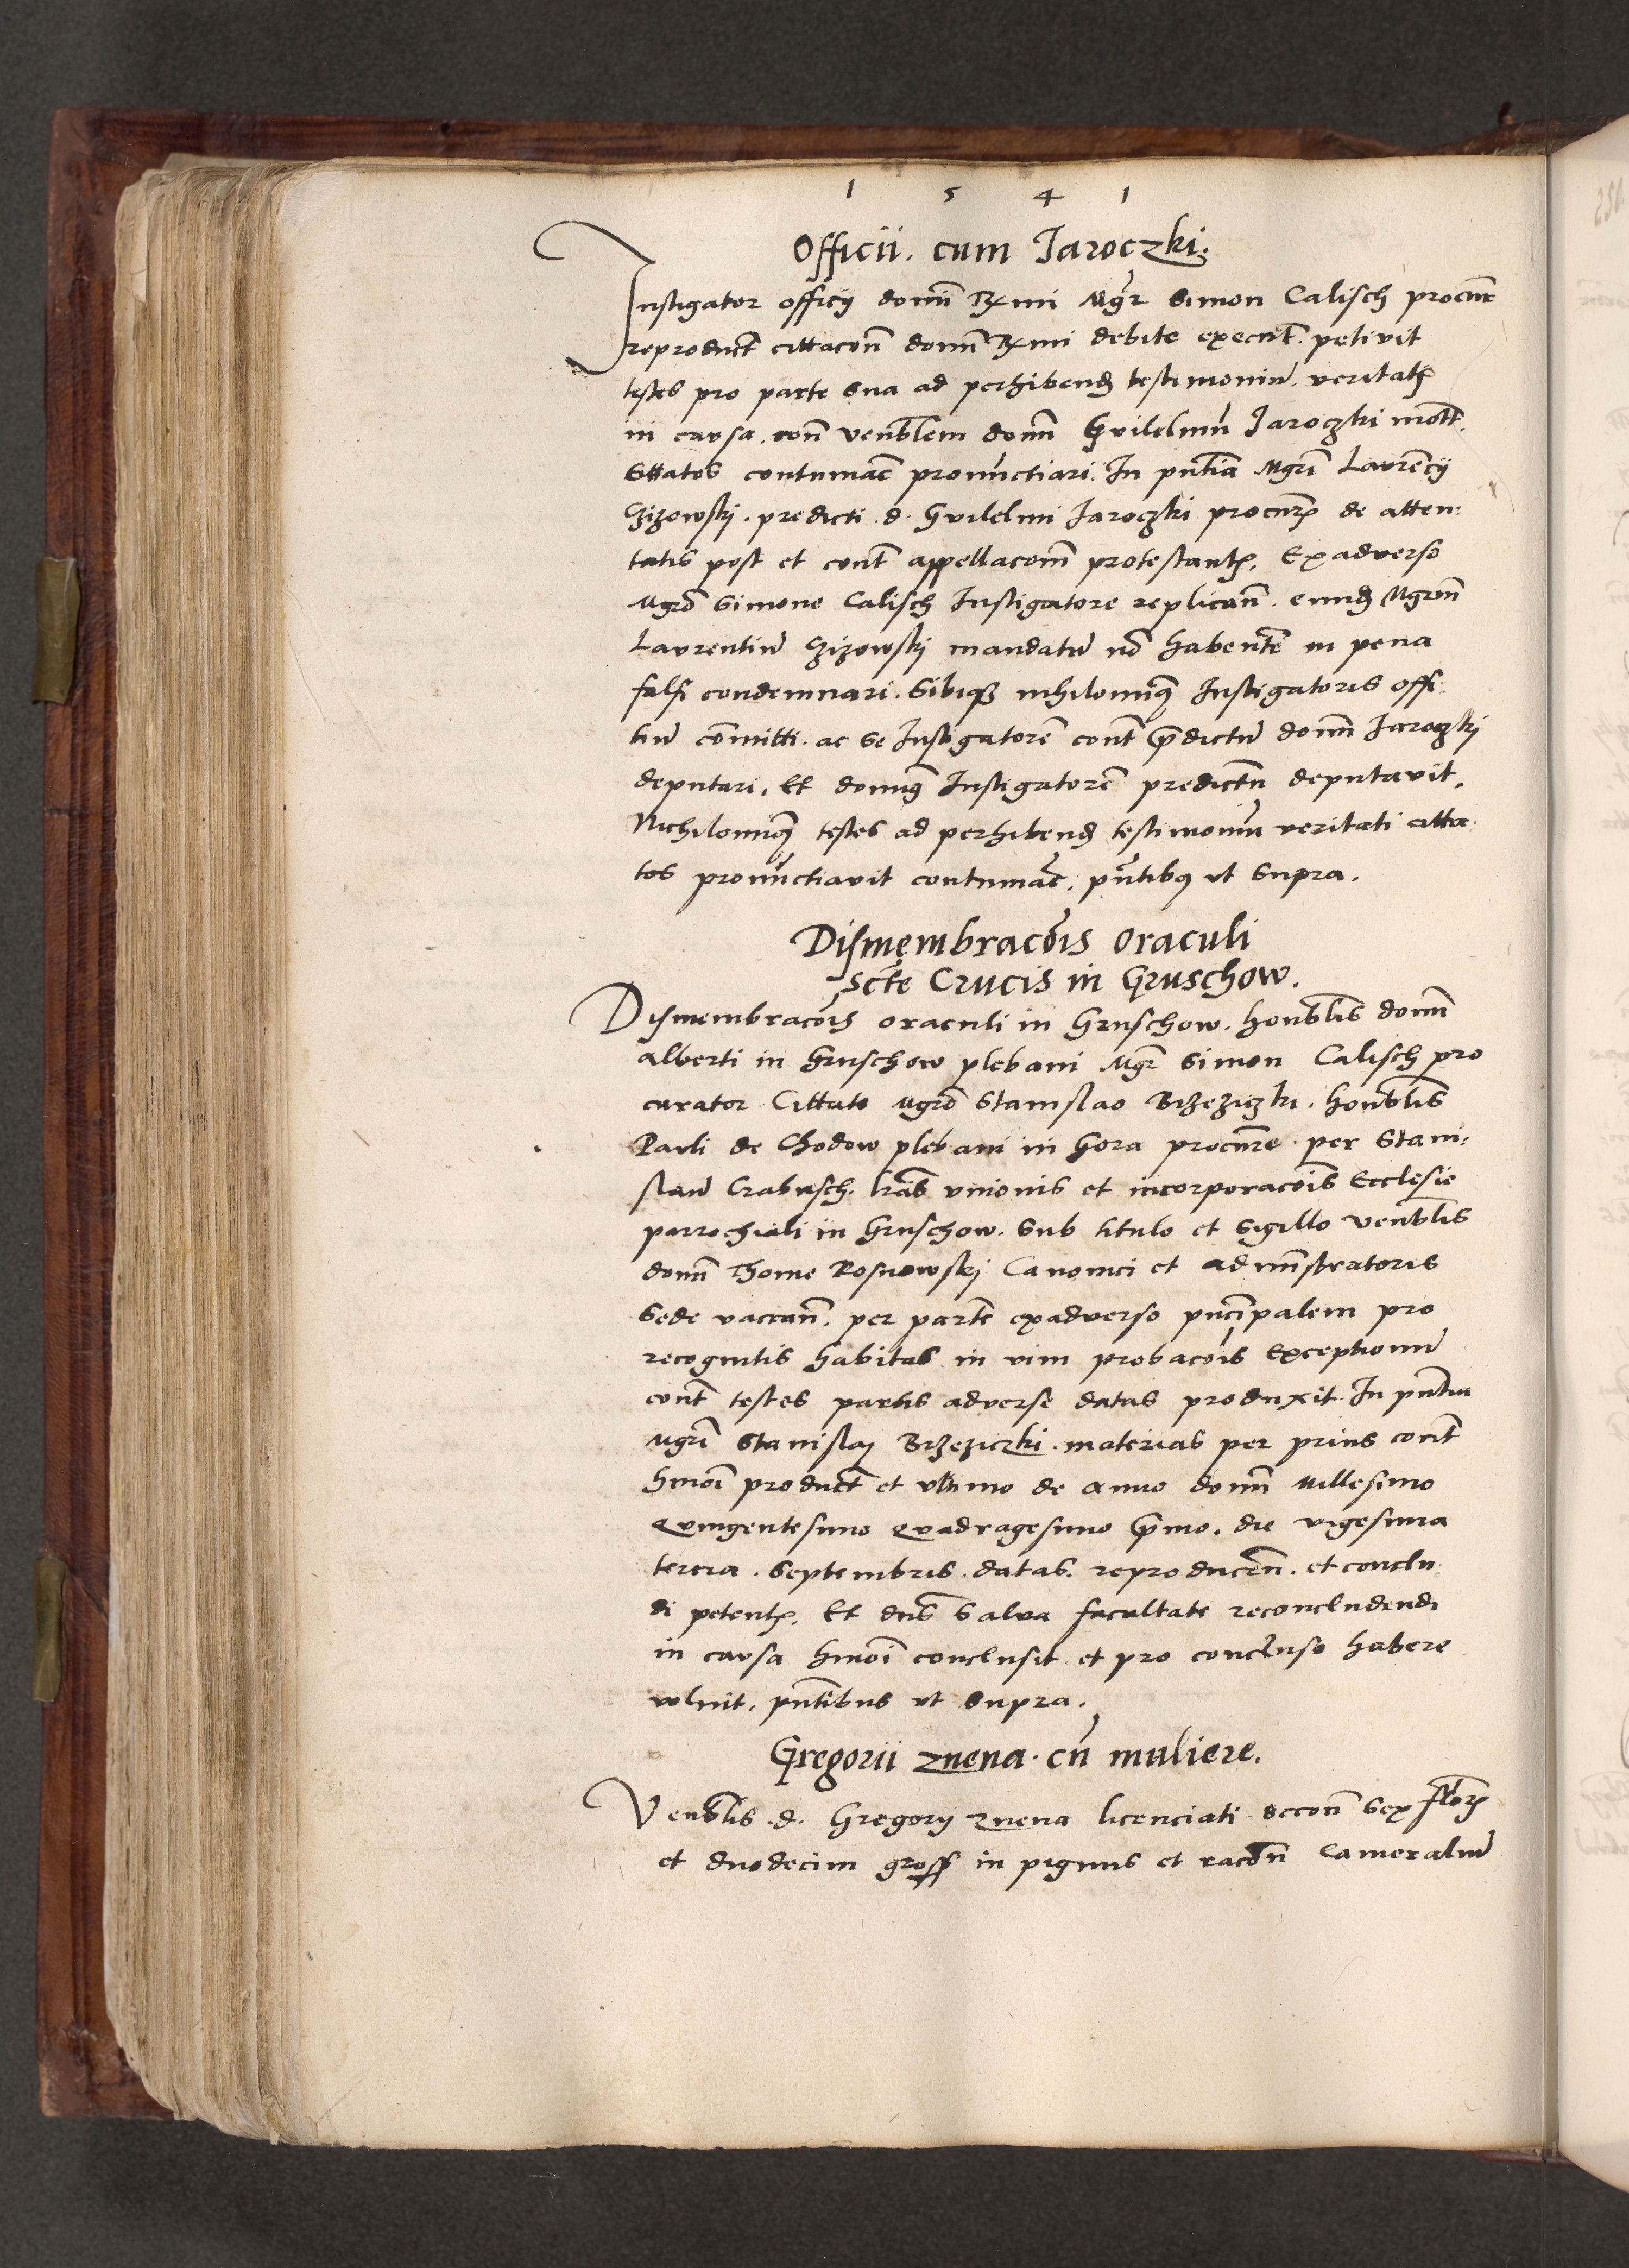 1 5 4 1
Officii. cum Jaroczki.
Instigator officij domī Rx̄mi Mgr̄ Simon Calisch procūr
reproduct̄ cittacoñ domī Rx̄mi debite execut̄. petivit
testes pro parte sua ad perhibend testimoniū. veritatj
in causa. con̄ ven̄blem domī Gvilelmū Jaroczki mot̄
Cittatos contumac̄ pronūctiari. In pñtia Mgrī Laurēcij
Czizowskj. predicti. d. Gvilelmi Jaroczki procur̄ de atten:
tatis post et cont̄ appellacom̄ protestant̄. Ex adverso
Mgrō Simone Calisch Instigatore replican̄. eund Mgrum̄
Laurentiū Czizowskj mandatū nō habentē in pena
falsi condemnari. Sibiqz nihilominqz Instigatoris offi
tiū cōmitti. ac se Instigatorē cont̄ p̄dictū domī Jaroczkj
deputari. Et domin9 Instigatorē predictū deputavit.
Nichilominqz testes ad perhibend testimoniū veritati citta
tos pronūctiavit contumac̄. pñtibus ut supra.
Dismembracōis oraculi
Sctē Crucis in Gruschow.
Dismembracōis oraculi in Gruschow. honn̄blis domī
alberti in Gruschow plebani Mgr̄ Simon Calisch pro
curator Cittato Mgrō Stanislao Brzeziczki. honn̄blis
Pauli de Chodow plebani in Gora procūre per Stani:
slaū Crabusch. lrās unionis et incorporacōis Ecclesie
parrochiali in Gruschow. sub titulo et sigillo Ven̄blis
domī Thome Rosnowskj Canonici et adm̄istratoris
Sede vacan̄. per partē ex adverso pñcipalem pro
recognitis habitas in vim probacōis Exceptionū
cont̄ testes partis adverse datas produxit. In pñtia
Mgrī Stanislaj Brzeziczki. materias per prius cont̄
hmōi product̄ et ultimo de anno domī Millesimo
Quingentesimo Quadragesimo p̄mo. die vigesima
tercia. Septembris. datas. reproducen̄. et conclu
di petent̄. Et dn̄s Salva facultate reconcludendi
in causa hmōi conclusit et pro concluso habere
voluit. pñtibus ut supra.
Gregorii znena. cū muliere.
Ven̄blis. d. Gregorij znena licenciati Sex flor̄
et duodecim gross in pignus et racōn̄ Cameraliū